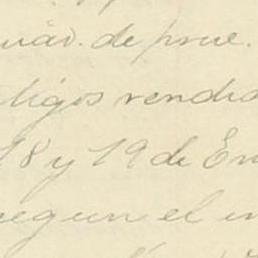 de prue.
tigos rendid
18 y 19 de En
segun el in